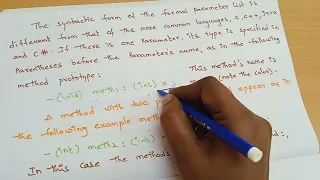 The syntactic form of the formal parameter list is
different from that of the more common languages, C, C++, Java
and C#. If there is one parameter, its type is specified in
Parentheses before the Parameter's name, as in the following
method prototype:
- (void) meth1: (int) x;
This method's name is
(note the colon).
A method with two
appear as in
the following example meth
- (int) meth2: (int)
In this case the methods